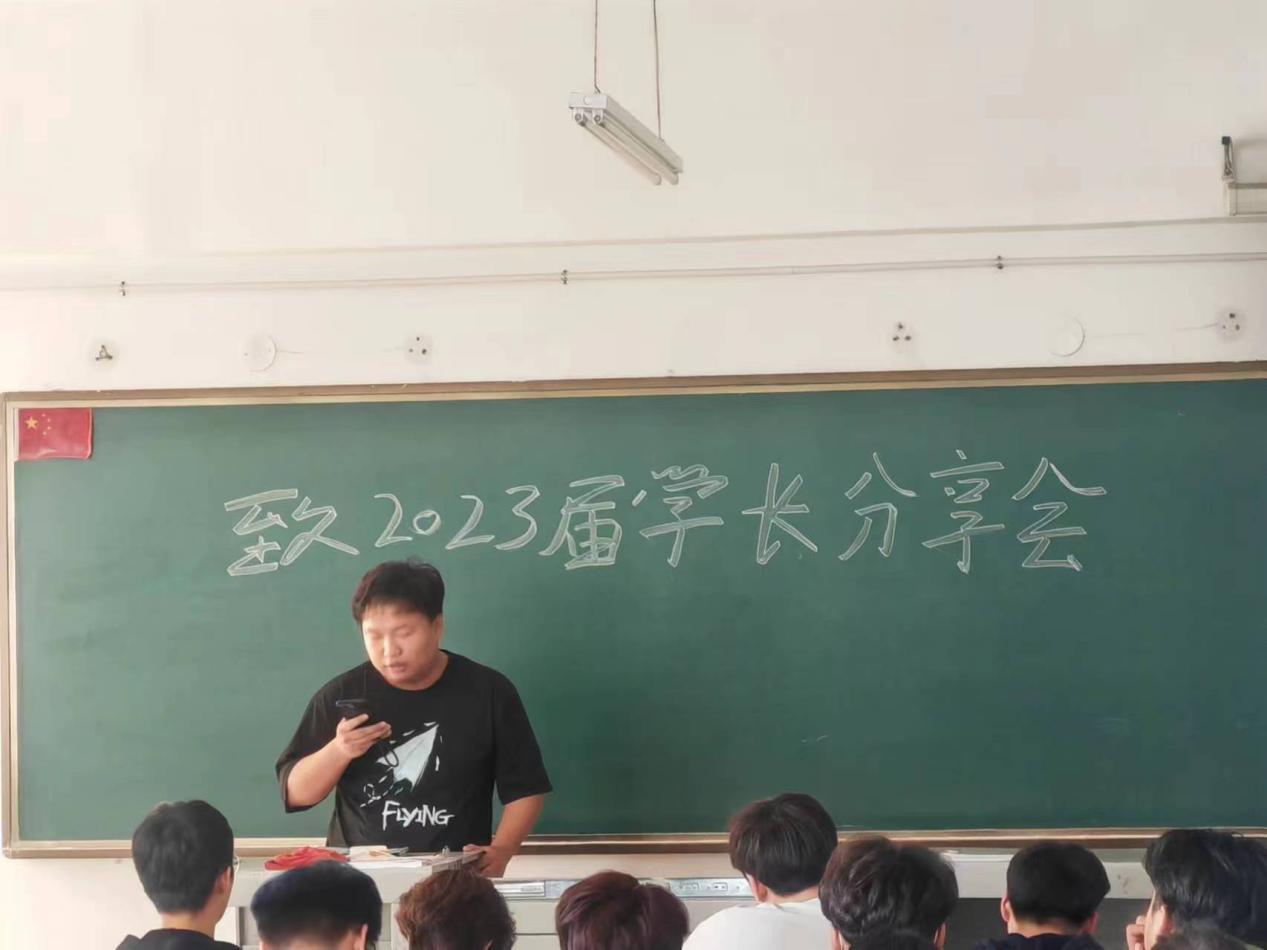 致2023届学长分享会
FLYING